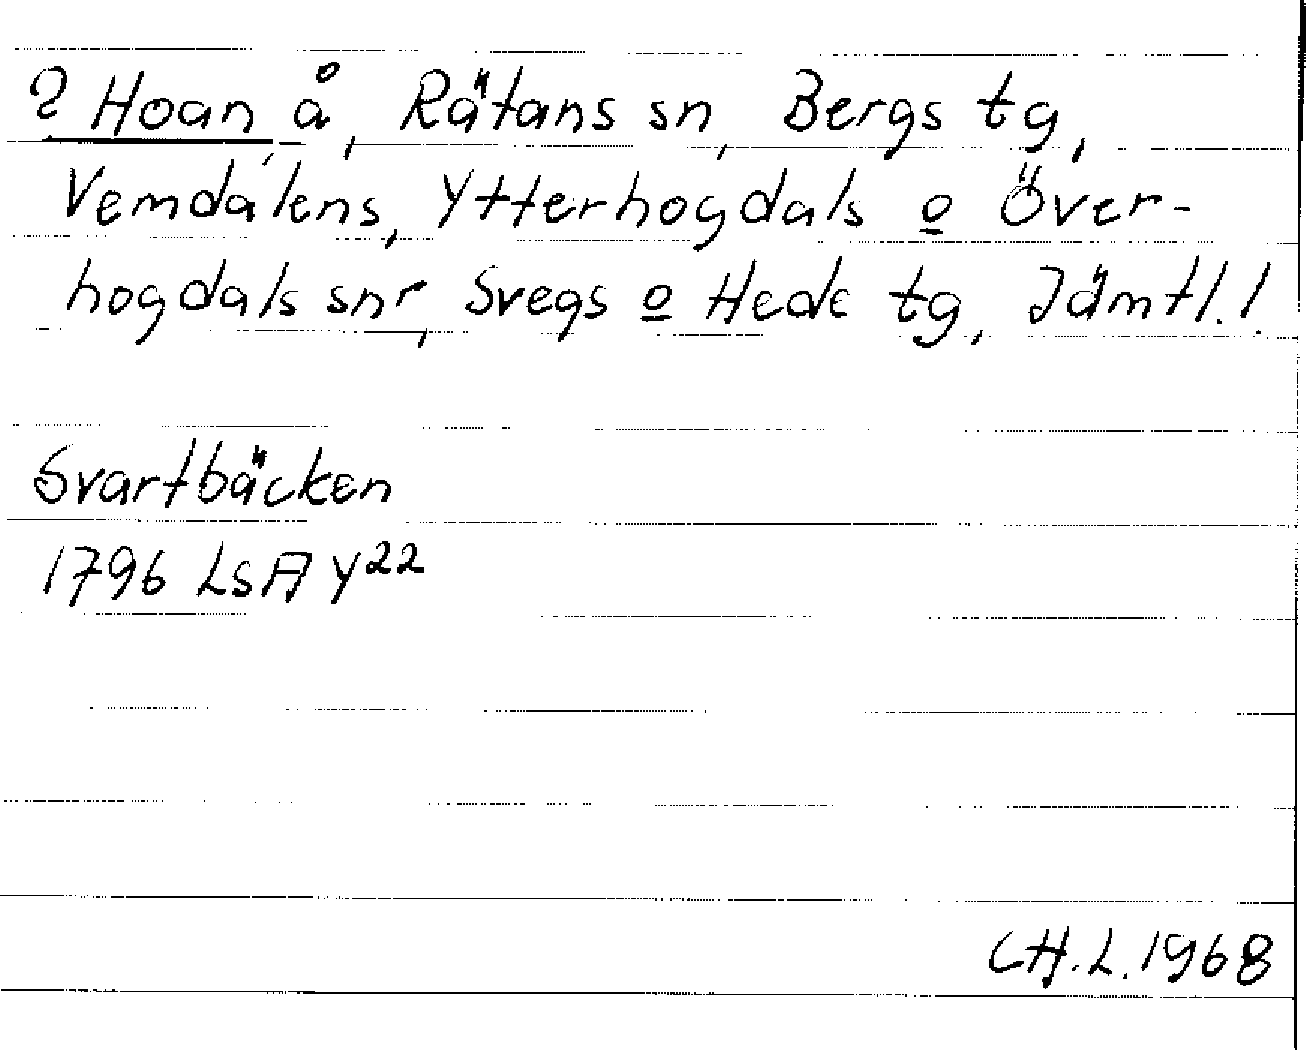 ? Hoan å, Rätans sn, Bergs tg,
Vemdalens, Ytterhogdals o Över-
hogdals snr, Svegs o Hede tg, Jämtl. l.
Svartbäcken
1796 LSA Y22
CH.L. 1968